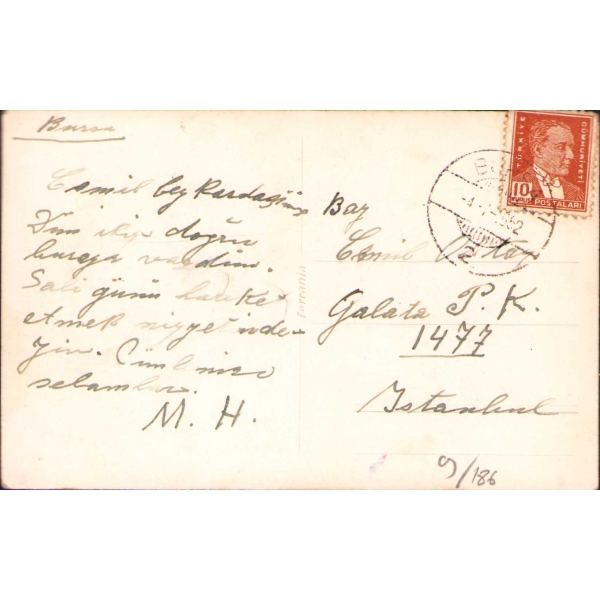 Bursa
Cemil bey Kardaşım
Dün doğru
buraya vardım.
Salı günü hareket
etmek niyyetinde-
yim. Cümlenize
selamlar.
M. H.
Bay
Cemil
Galata P. K.
1477
Istanbul
9/186
TÜRKİYE
CUMHURİYETİ
10
POSTALARI
2
Ferrania